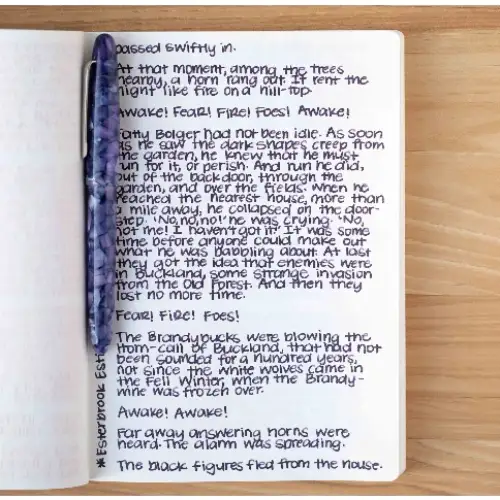 passed swiftly in.
At that moment, among the trees
nearby, a horn rang out. It rent the
night like fire on a hill-top.
Awake! Fear! Fire! Foes! Awake!
Fatty Bolger had not been idle. As soon
as he saw the dark shapes creep from
the garden, he knew that he must
run for it, or perish. And run he did,
out of the back door, through the
garden, and over the fields. When he
reached the nearest house, more than
a mile away, he collapsed on the door-
step. 'No, no, no!' he was crying. 'No,
not me! I haven't got it!' It was some
time before anyone could make out
what he was babbling about. At last
they got the idea that enemies were
in Buckland, some strange invasion
from the Old Forest. And then they
lost no more time.
Fear! Fire! Foes!
The Brandybucks were blowing the
Horn-call of Buckland, that had not
been sounded for a hundred years,
not since the white wolves came in
the Fell Winter, when the Brandy-
wine was frozen over.
Awake! Awake!
Far away answering horns were
heard. The alarm was spreading.
The black figures fled from the house.
*Esterbrook Esti